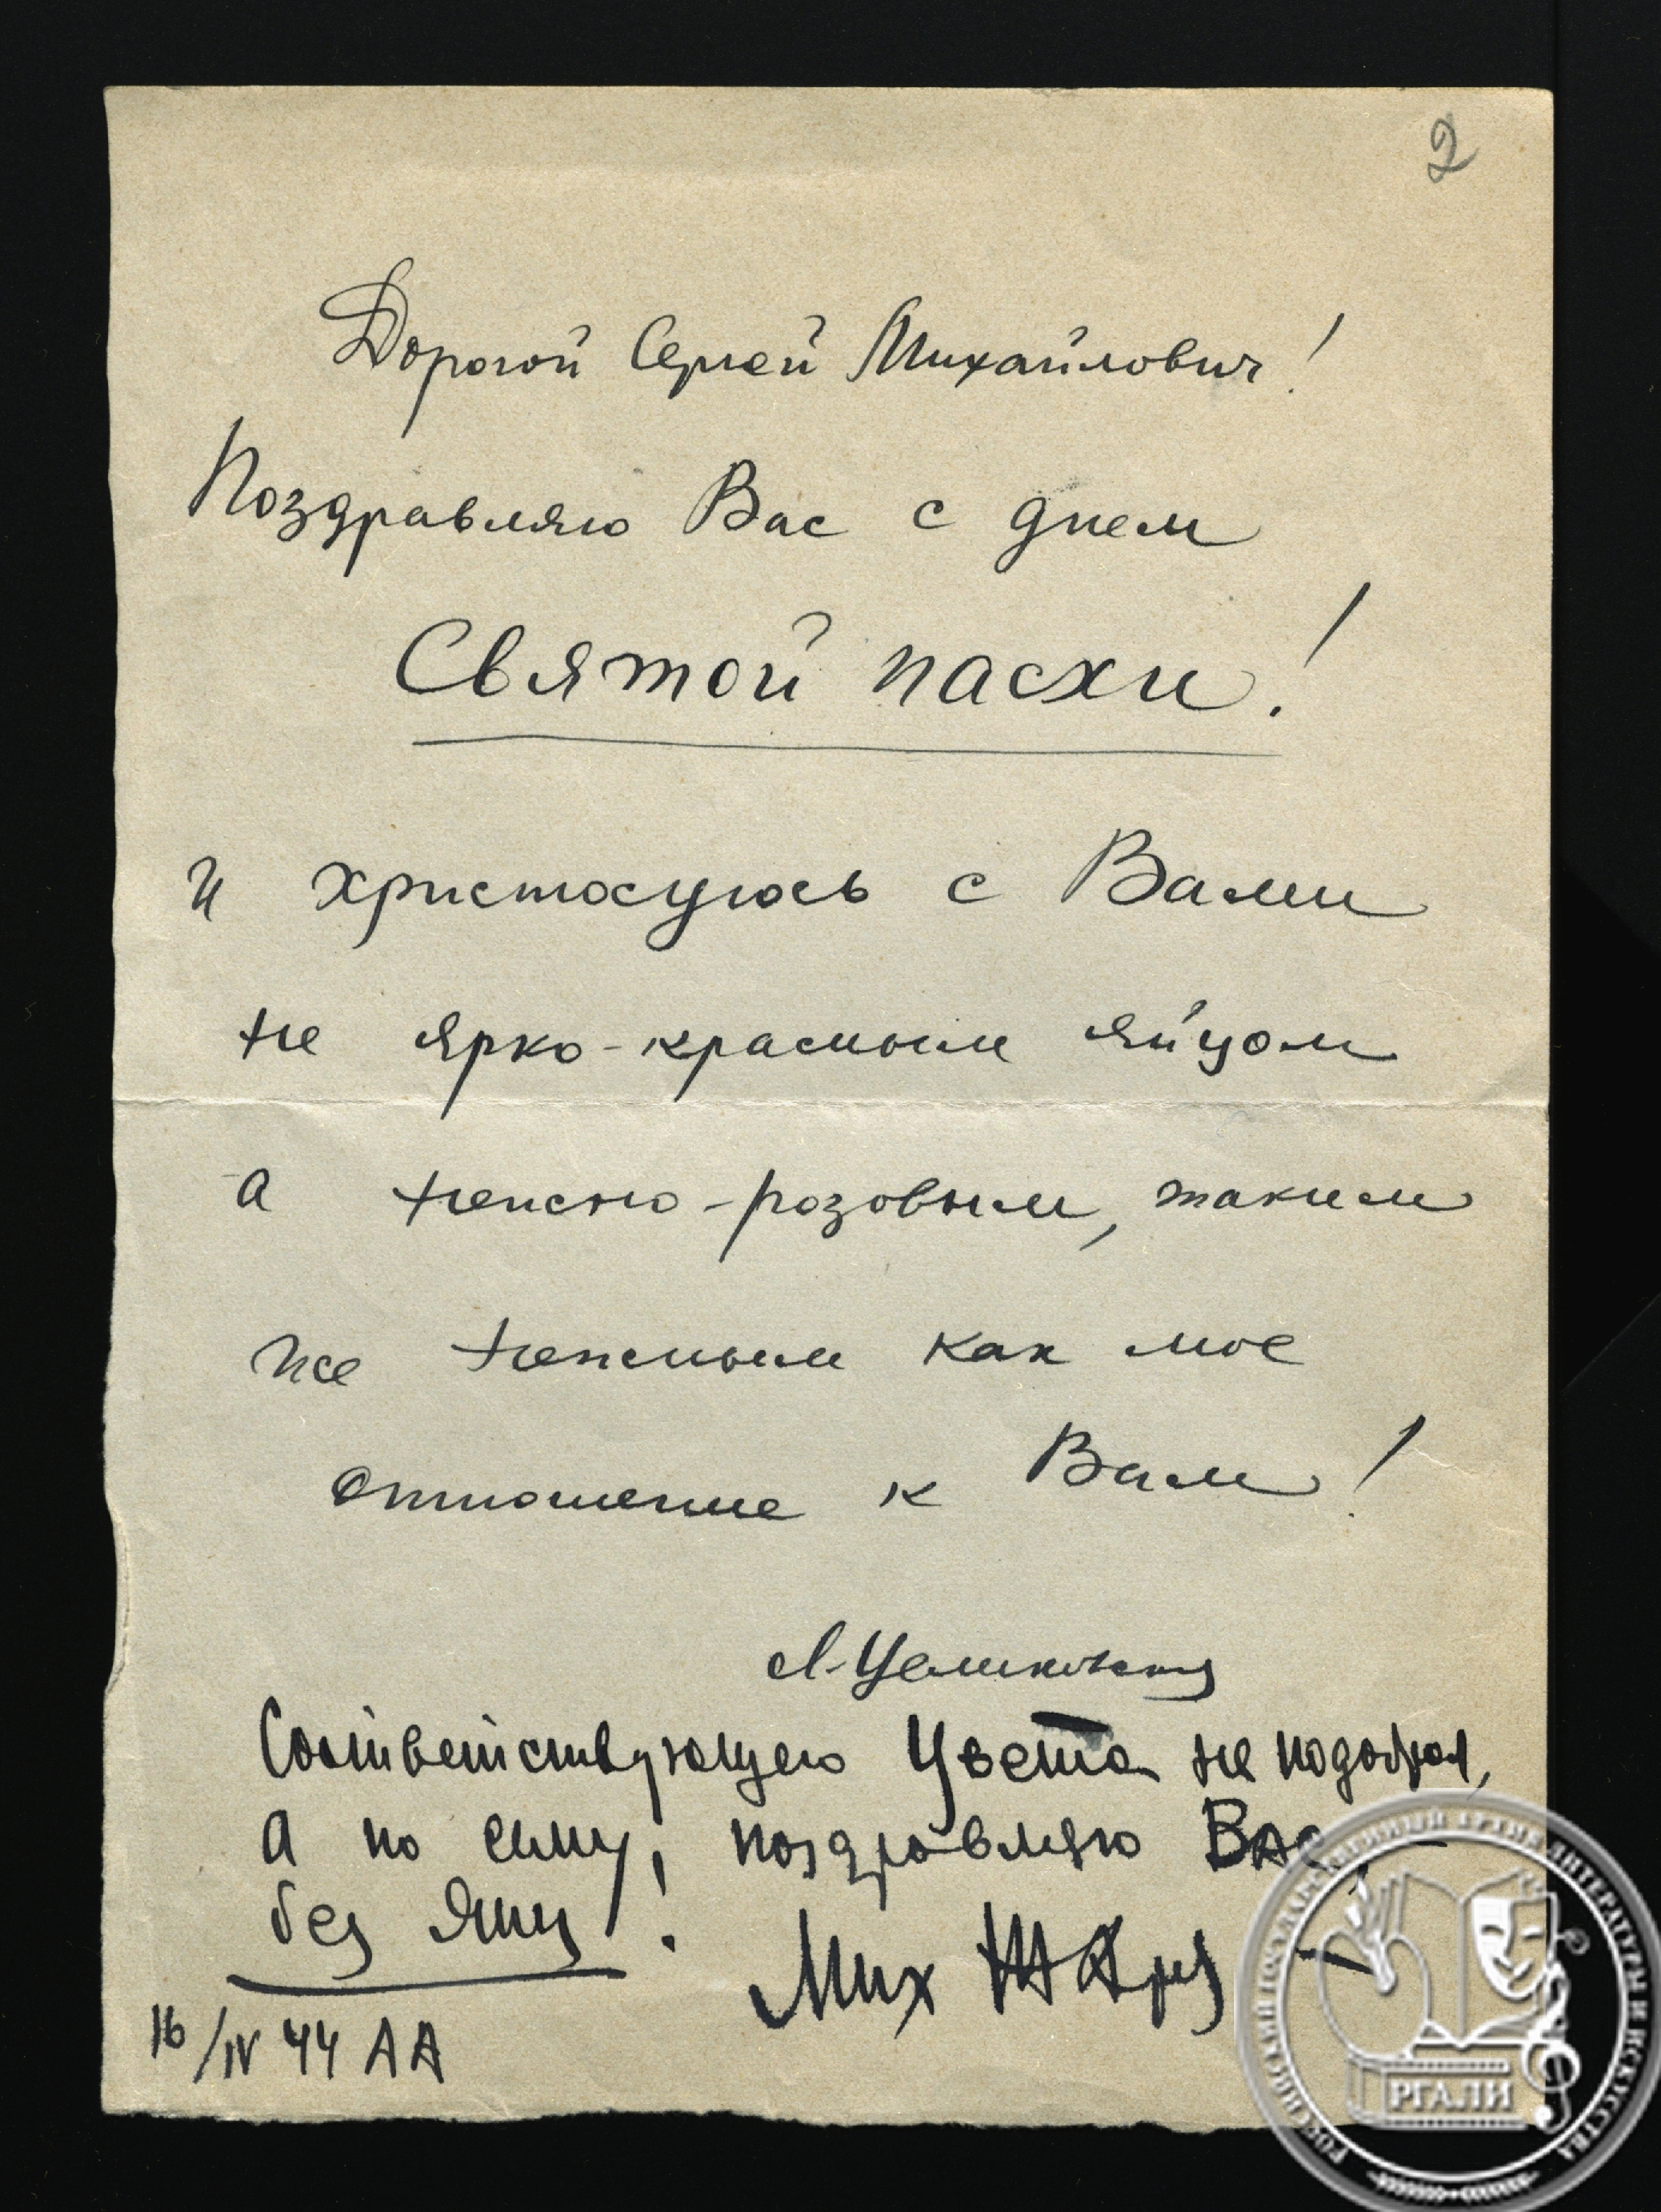 2
Дорогой Сергей Михайлович!
Поздравляю Вас с днем
Святой пасхи!
и христосуюсь с Вами
не ярко-красным яйцом
а нежно-розовым, таким
же нежным как мое
отношение к Вам!
Л. Целиковская
Соответствующего цвета не подобрал,
а по сему, поздравляю Вас
без яиц!
Мих Жаров
16/IV 44 АА
РОССИЙСКИЙ ГОСУДАРСТВЕННЫЙ АРХИВ ЛИТЕРАТУРЫ И ИСКУССТВА
РГАЛИ